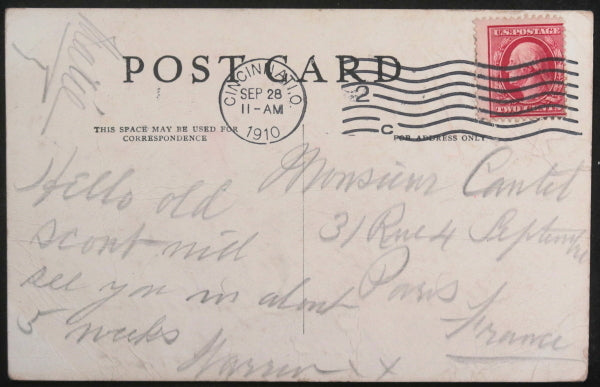 POST CARD
U.S. POSTAGE
TWO CENTS
CINCINNATI, O.
SEP 28
11-AM
1910
2
C
THIS SPACE MAY BE USED FOR
CORRESPONDENCE
FOR ADDRESS ONLY
Hello old
scout will
see you in about
5 weeks
Warren x
Monsieur Cantel
31 Rue 4 Septembre
Paris
France